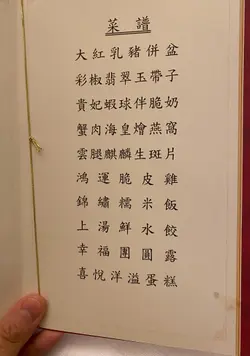 菜譜
大紅乳豬併盆
彩椒翡翠玉帶子
貴妃蝦球伴脆奶
蟹肉海皇燴燕窩
雲腿麒麟生斑片
鴻運脆皮雞
錦繡糯米飯
上湯鮮水餃
幸福團圓露
喜悅洋溢蛋糕